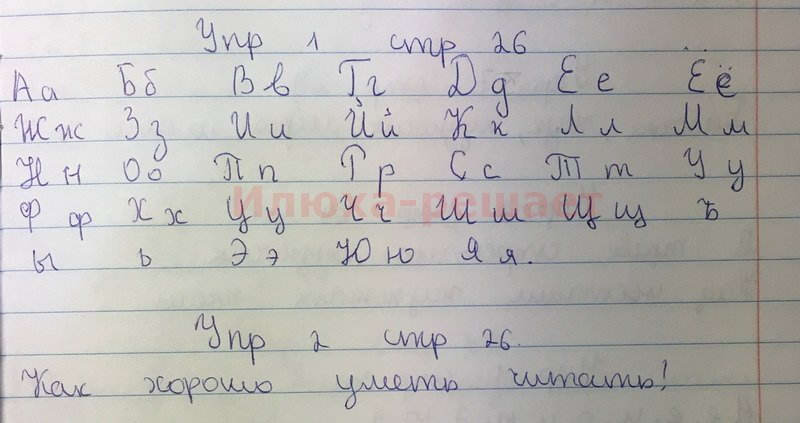 Упр 1 стр 26
Аа Бб Вв Гг Дд Ее Её
Жж Зз Ии Йй Кк Лл Мм
Нн Оо Пп Рр Сс Тт Уу
Илюха-решает
Фф Хх Цц Чч Шш Щщ ъ
ы ь Ээ Юю Яя.
Упр 2 стр 26.
Как хорошо уметь читать!